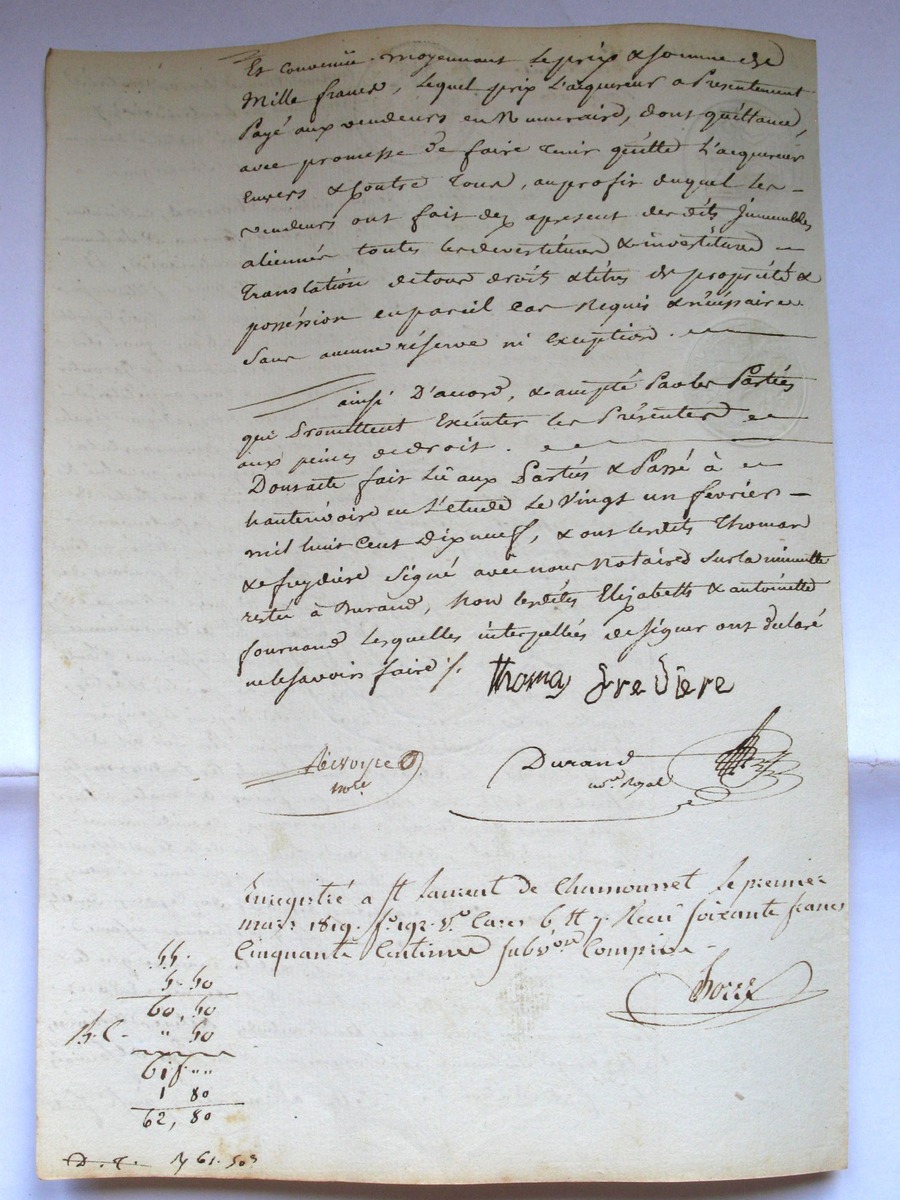 Et Convenüe moyennant le prix & somme de
Mille francs, lequel prix L'acquereur a Présentement
Payé aux vendeurs en Numeraire, dont quittance,
avec promesse de faire tenir quitte L'acquereur
Envers & contre Tous, au profit duquel les
vendeurs ont fait dez apresent desdits Jmmeubles
aliennés toutes les devestitures & investitures
Translation de tous droits & titres de propriété &
possession en pareil cas Requis & nécéssaire
Sans aucune réserve ni Exception.
ainsi D'accord, & accepté Par les Parties
qui Promettent Exécuter les Présentes
aux peines de droit.
Dont acte fait lû aux Parties & Passé à
hauterivoire en L'étude Le Vingt un février
mil huit Cent Dix neuf, & ont lesdits Thomas
& freydiere Signé avec nous Notaires Sur la minutte
restée à Durand, Non lesdites Elizabeth & antoinette
fournand Lesquelles interpellées de signer ont déclaré
ne le savoir faire %.
thomas frediere
nore
Durand
nore Royal
Enregistré a St Laurent de Chamousset le premier
mars 1819. fo. 192. Vo. Cases 6 & 7. Recu soixante francs
Cinquante Centimes subvon Comprise
55.
5.50
60,50
" 50
61 f ""
1 80
62, 80
61.50